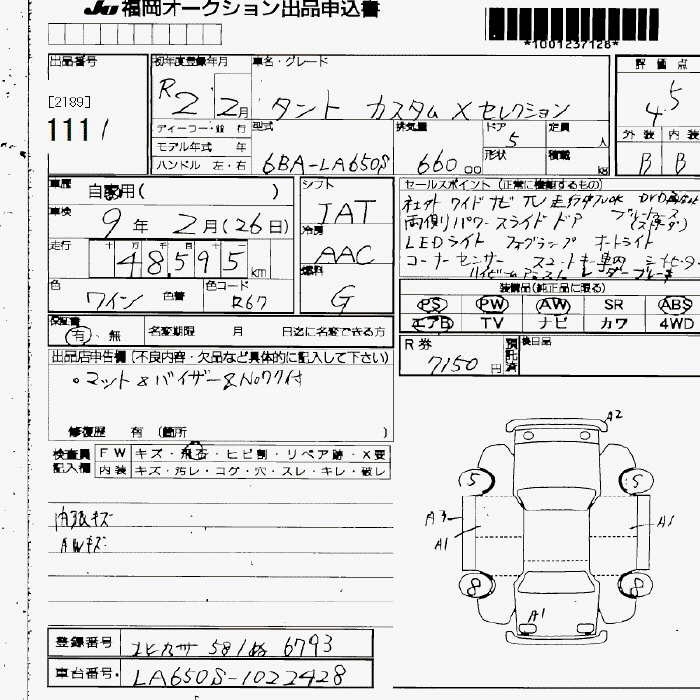 JU 福岡オークション出品申込書
*1001237128*
出品番号
[2189]
111 /
初年度登録年月
R2 2月
車名・グレード
タント カスタム X セレクション
評価点
4.5
外装 内装
B B
ディーゼル・並行
モデル年式 年
ハンドル 左・右
型式
6BA-LA650S
排気量
660 00
ドア
5
形状
定員
人
積載
kg
車歴
自家用( )
車検
9年 2月(26日)
走行
十 万 千 百 十
48,595 km
色
ワイン 色替
色コード
R67
シフト
IAT
冷房
AAC
燃料
G
セールスポイント (正常に機動するもの)
社外 ワイド ナビ TV 走行中TVOK DVD再生
両側パワースライドドア
LEDライト フォグランプ オートライト
コーナーセンサー スマートキー
レーダーブレーキ
装備品(純正品に限る)
PS PW AW SR ABS
エアB TV ナビ カワ 4WD
保証書
有・無
名変期限 月 日迄に名変できる方
R券
7150円
預託済
検目品
出品店申告欄 (不良内容・欠品など具体的に記入して下さい)
・マット&バイザー&Noワク付
修復歴 有 (箇所 )
検査員記入欄
FW キズ・飛石・ヒビ割・リペア跡・X要
内装 キズ・汚レ・コゲ・穴・スレ・キレ・破レ
内張キズ
AWキズ
A2
5 5
A3
A1
A1
8 8
A1
登録番号 北九州 581 ぬ 6793
車台番号 LA650S-1022428